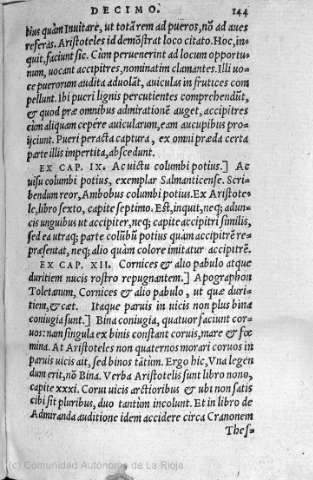 DECIMO. 144
bius quàm Inuitare, ut totã rem ad pueros, nõ ad aues
referas. Aristoteles id demõstrat loco citato. Hoc, in-
quit, faciunt sic. Cùm peruenerint ad locum opportu-
num, uocant accipitres, nominatim clamantes. Illi uo-
ce puerorum audita aduolãt, auiculas in frutices com
pellunt. Ibi pueri lignis percutientes comprehendũt,
& quod præ omnibus admirationẽ auget, accipitres
cùm aliquam cepêre auicularum, eam aucupibus pro-
ijciunt. Pueri peracta captura, ex omni præda certa
parte illis impertita, abscedunt.
EX CAP. IX. Ac uictu columbi potius.] Ac
uisu columbi potius, exemplar Salmanticense. Scri-
bendum reor, Ambobus columbi potius. Ex Aristote-
le, libro sexto, capite septimo. Est, inquit, neq; adun-
cis unguibus ut accipiter, neq; capite accipitri similis,
sed ea utraq; parte colũbũ potius quàm accipitrẽ re-
præsentat, neq; alio quàm colore imitatur accipitrẽ.
EX CAP. XII. Cornices & alio pabulo atque
duritiem nucis rostro repugnantem.] Apographon
Toletanum, Cornices & alio pabulo, ut quæ duri-
tiem, & cæt. Itaque paruis in uicis non plus bina
coniugia sunt.] Bina coniugia, quatuor faciunt cor-
uos: nam singula ex binis constant coruis, mare & fœ
mina. At Aristoteles non quaternos morari coruos in
paruis uicis ait, sed binos tãtùm. Ergo hic, Vna legen
dum erit, nõ Bina. Verba Aristotelis sunt libro nono,
capite xxxi. Corui uicis arctioribus & ubi non satis
cibi sit pluribus, duo tantùm incolunt. Et in libro de
Admiranda auditione idem accidere circa Cranonem
Thes-
(c) Comunidad Autónoma de La Rioja